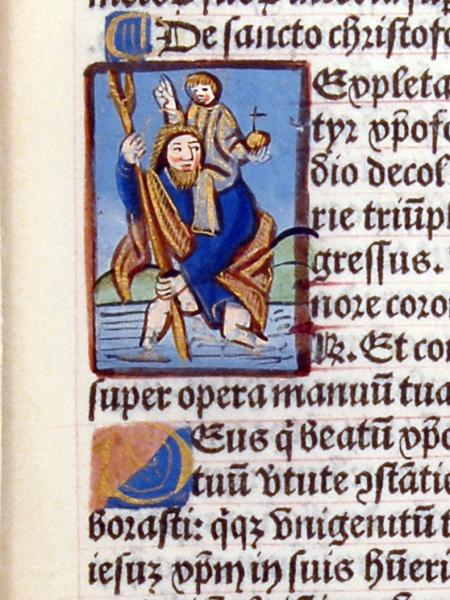 De sancto christofo
Expleta
tyr xp̄ofo
dio decol
rie triūph
gressus.
nore coron
℟. Et con
super opera manuū tua
Deus q̇ beatū xp̄o
tuū v̇tute ꝯstātie
borasti: q̇qꝫ v̇nigenitū t
iesuꝫ xp̄m in suis hūeri